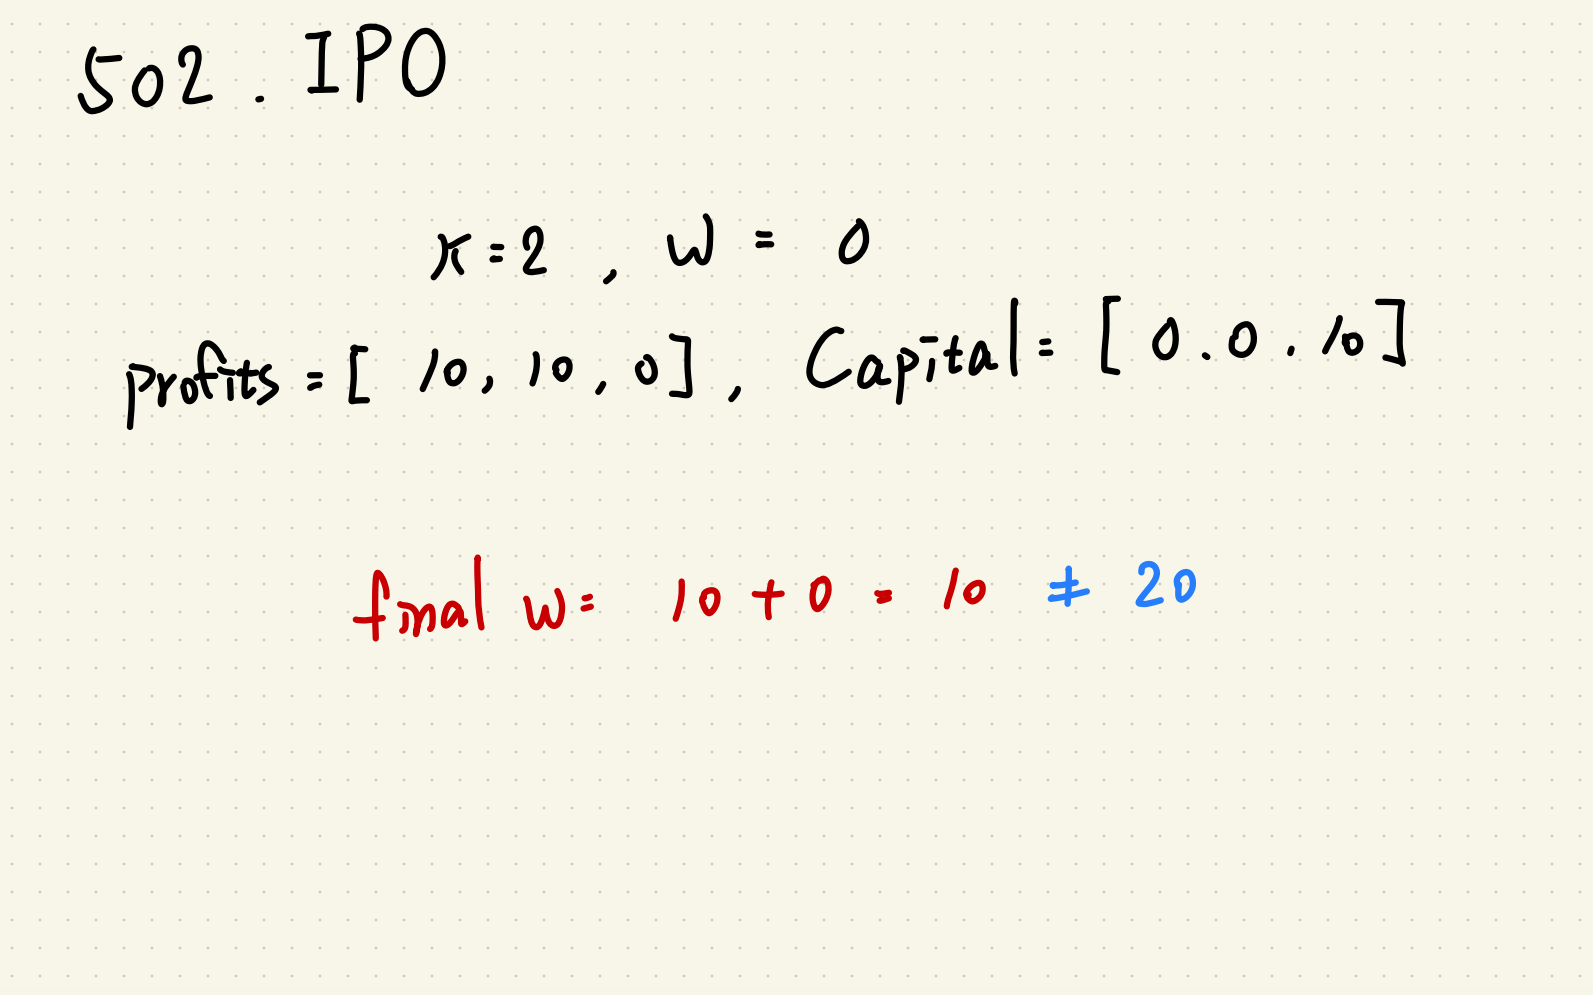 502. IPO
K=2, W = 0
profits = [ 10, 10, 0 ], Capital = [ 0. 0. 10 ]
final w= 10 + 0 = 10 ≠ 20